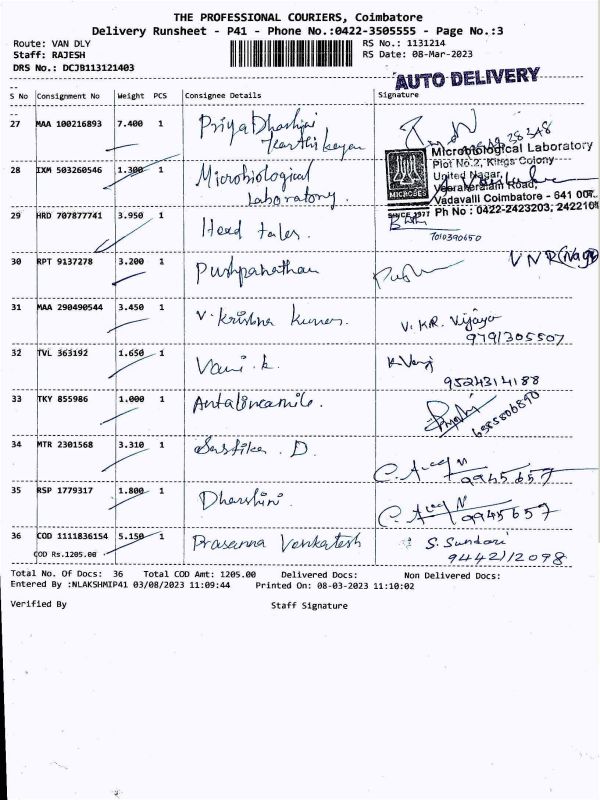 THE PROFESSIONAL COURIERS, Coimbatore
Delivery Runsheet - P41 - Phone No.:0422-3505555 - Page No.:3
Route: VAN DLY RS No.: 1131214
Staff: RAJESH RS Date: 08-Mar-2023
DRS No.: DCJB113121403
AUTO DELIVERY
S No Consignment No Weight PCS Consignee Details Signature
27 MAA 100216893 7.400 1 Priya Dharshini
Karthikeyan
Microbiological Laboratory
Plot No.2, Kings Colony
28 IXM 503260546 1.300 1 Microbiological
Laboratory.
United Nagar,
Veerakeralam Road,
MICROBES Vadavalli Coimbatore - 641 007.
SINCE 1977 Ph No : 0422-2423203,
29 HRD 707877741 3.950 1 Head
7010390650
30 RPT 9137278 3.200 1 Pushpanathan
VNR (Nag)
31 MAA 290490544 3.450 1 V. Krishna Kumar. V. K.R. Vijaya
9791305507
32 TVL 363192 1.650 1 Vani. k. K. Vani
9524314188
33 TKY 855986 1.000 1
34 MTR 2301568 3.310 1 Sastika. D.
9945657
35 RSP 1779317 1.800 1 Dharshini.
9945657
36 COD 1111836154 5.150 1 Prasanna Venkatesh S. Sundari
COD Rs.1205.00 9442112098
Total No. Of Docs: 36 Total COD Amt: 1205.00 Delivered Docs: Non Delivered Docs:
Entered By :NLAKSHMIP41 03/08/2023 11:09:44 Printed On: 08-03-2023 11:10:02
Verified By Staff Signature